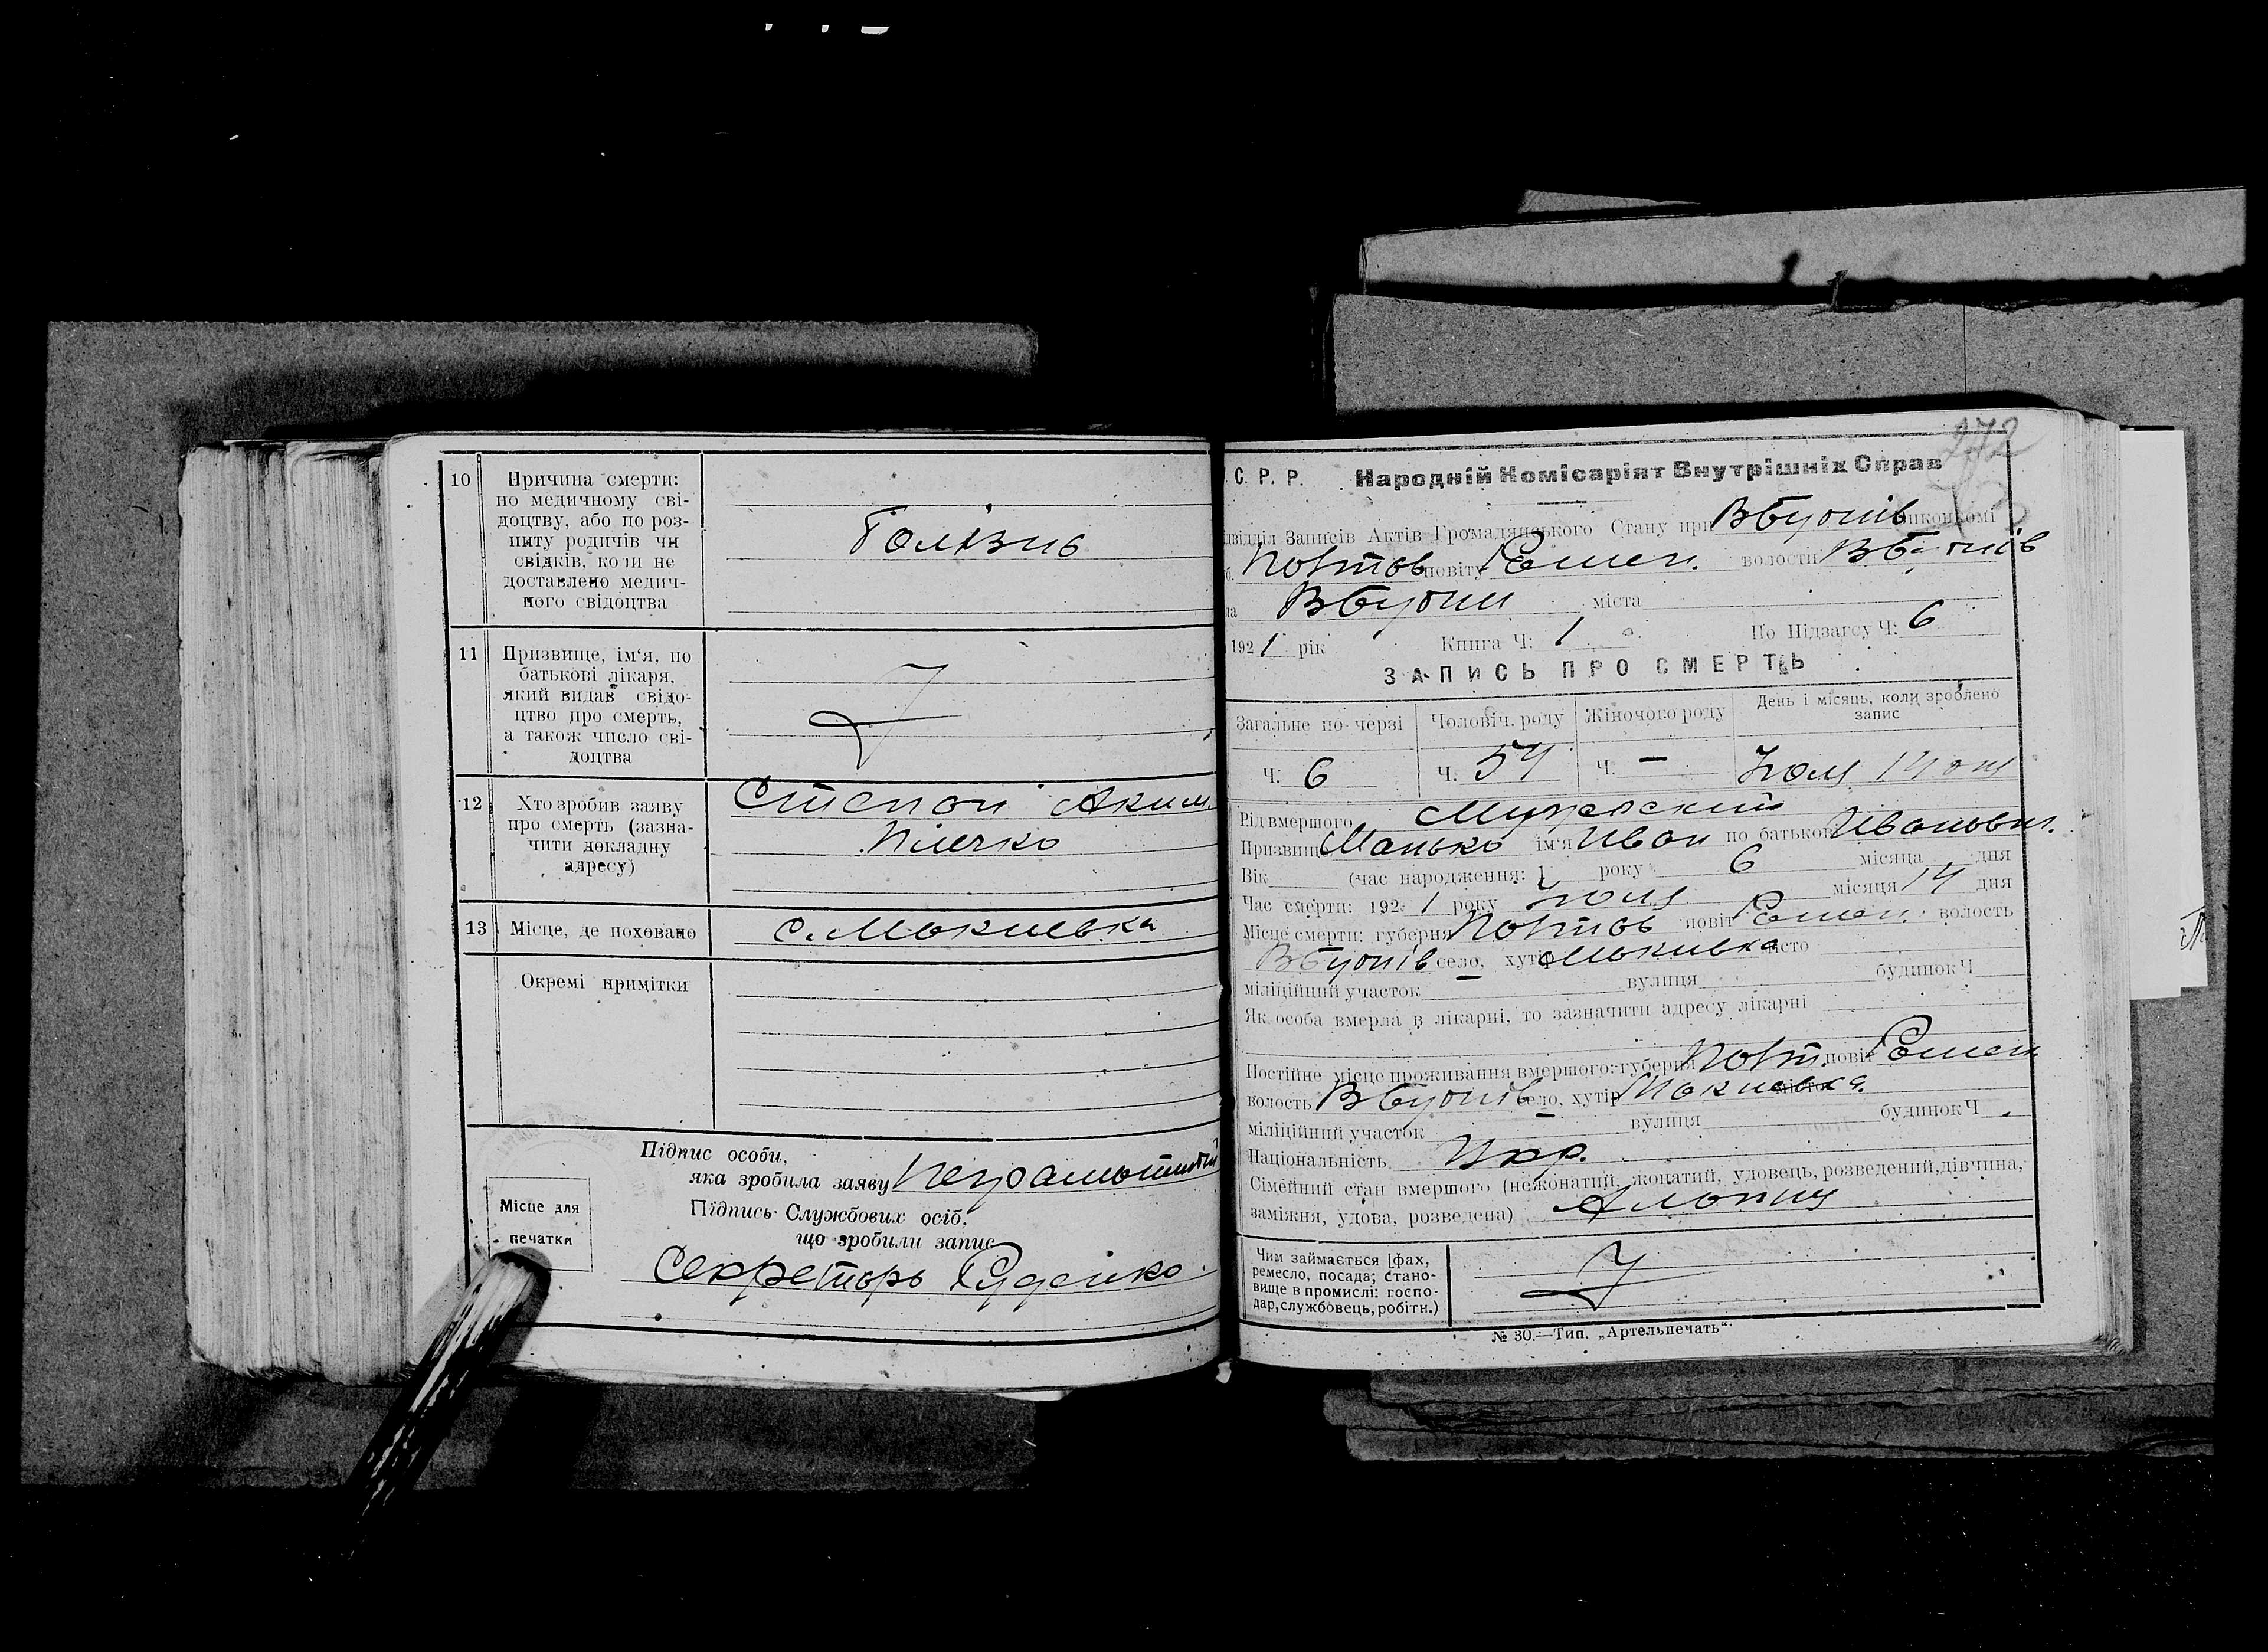 10 Причина смерти:
по медичному сві-
доцтву, або по роз-
питу родичів чи
свідків, коли не
доставлено медич-
ного свідоцтва
11 Призвище, ім'я, по
батькові лікаря,
який видав свідо-
цтво про смерть,
а також число сві-
доцтва
12 Хто зробив заяву
про смерть (зазна-
чити докладну
адресу)
Степан Аким.
13 Місце, де поховано
Окремі примітки
Підпис особи,
яка зробила заяву Неграмотний
Підпись Службових осіб,
що зробили запис
Секретарь Руденко
Місце для
печатки
272
С. Р. Р. Народній Комісаріят Внутрішніх Справ
Записів Актів Громадянського Стану при виконкомі
Полтов повіту Ромен. волости
міста
1921 рік Книга Ч: 1 По Підзагсу Ч: 6
ЗАПИСЬ ПРО СМЕРТЬ
Загальне по черзі Чоловіч. роду Жіночого роду День і місяць, коли зроблено
запис
Ч: 6 Ч. 54 Ч. —
Рід вмершого Мужеский
Призвище Манько ім'я Иван по батькові Иванович.
Вік (час народження: 1 року 6 місяца дня
Час смерти: 1921 року місяця 14 дня
Місце смерти: губерня Полтов повіт Ромен. волость
село, хутір місто
міліційний участок вулиця будинок Ч
Як особа вмерла в лікарні, то зазначити адресу лікарні
Постійне місце проживання вмершого: губерня Полт. повіт Ромен
волость село, хутір місто
міліційний участок вулиця будинок Ч.
Національність Укр.
Сімейний стан вмершого (нежонатий, жонатий, удовець, розведений, дівчина,
заміжня, удова, розведена)
Чим займається [фах,
ремесло, посада; стано-
вище в промислі: госпо-
дар, службовець, робітн.)
№ 30.—Тип. „Артельпечать“